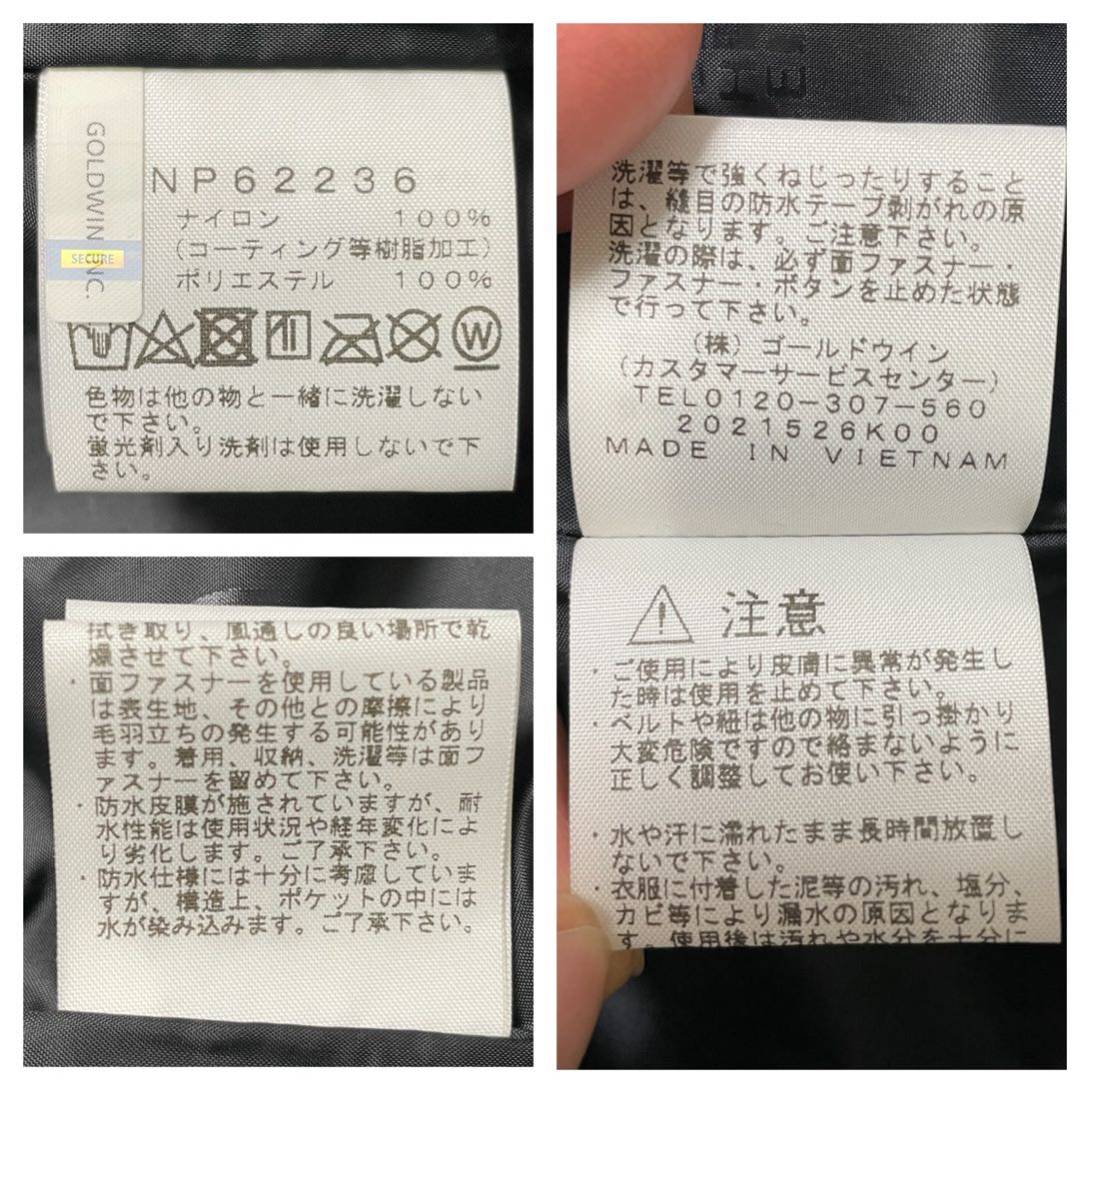 GOLDWIN INC.
SECURE
NP62236
ナイロン 100%
(コーティング等樹脂加工)
ポリエステル 100%
W
色物は他の物と一緒に洗濯しない
で下さい。
蛍光剤入り洗剤は使用しないで下
さい。
拭き取り、風通しの良い場所で乾
燥させて下さい。
・面ファスナーを使用している製品
は表生地、その他との摩擦により
毛羽立ちの発生する可能性があり
ます。着用、収納、洗濯等は面フ
ァスナーを留めて下さい。
・防水皮膜が施されていますが、耐
水性能は使用状況や経年変化によ
り劣化します。ご了承下さい。
・防水仕様には十分に考慮していま
すが、構造上、ポケットの中には
水が染み込みます。ご了承下さい。
洗濯等で強くねじったりすること
は、縫目の防水テープ剥がれの原
因となります。ご注意下さい。
洗濯の際は、必ず面ファスナー・
ファスナー・ボタンを止めた状態
で行って下さい。
(株)ゴールドウイン
(カスタマーサービスセンター)
TEL0120-307-560
2021526K00
MADE IN VIETNAM
注意
・ご使用により皮膚に異常が発生し
た時は使用を止めて下さい。
・ベルトや紐は他の物に引っ掛かり
大変危険ですので絡まないように
正しく調整してお使い下さい。
・水や汗に濡れたまま長時間放置し
ないで下さい。
・衣服に付着した泥等の汚れ、塩分、
カビ等により漏水の原因となりま
す。使用後は汚れや水分を十分に